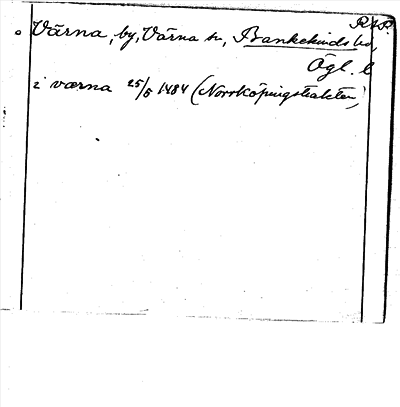 RAP.
Värna, by, Värna sn, Bankekinds hd,
Ögl. l
i værna 25/5 1484 (Norrköpingstrakten)